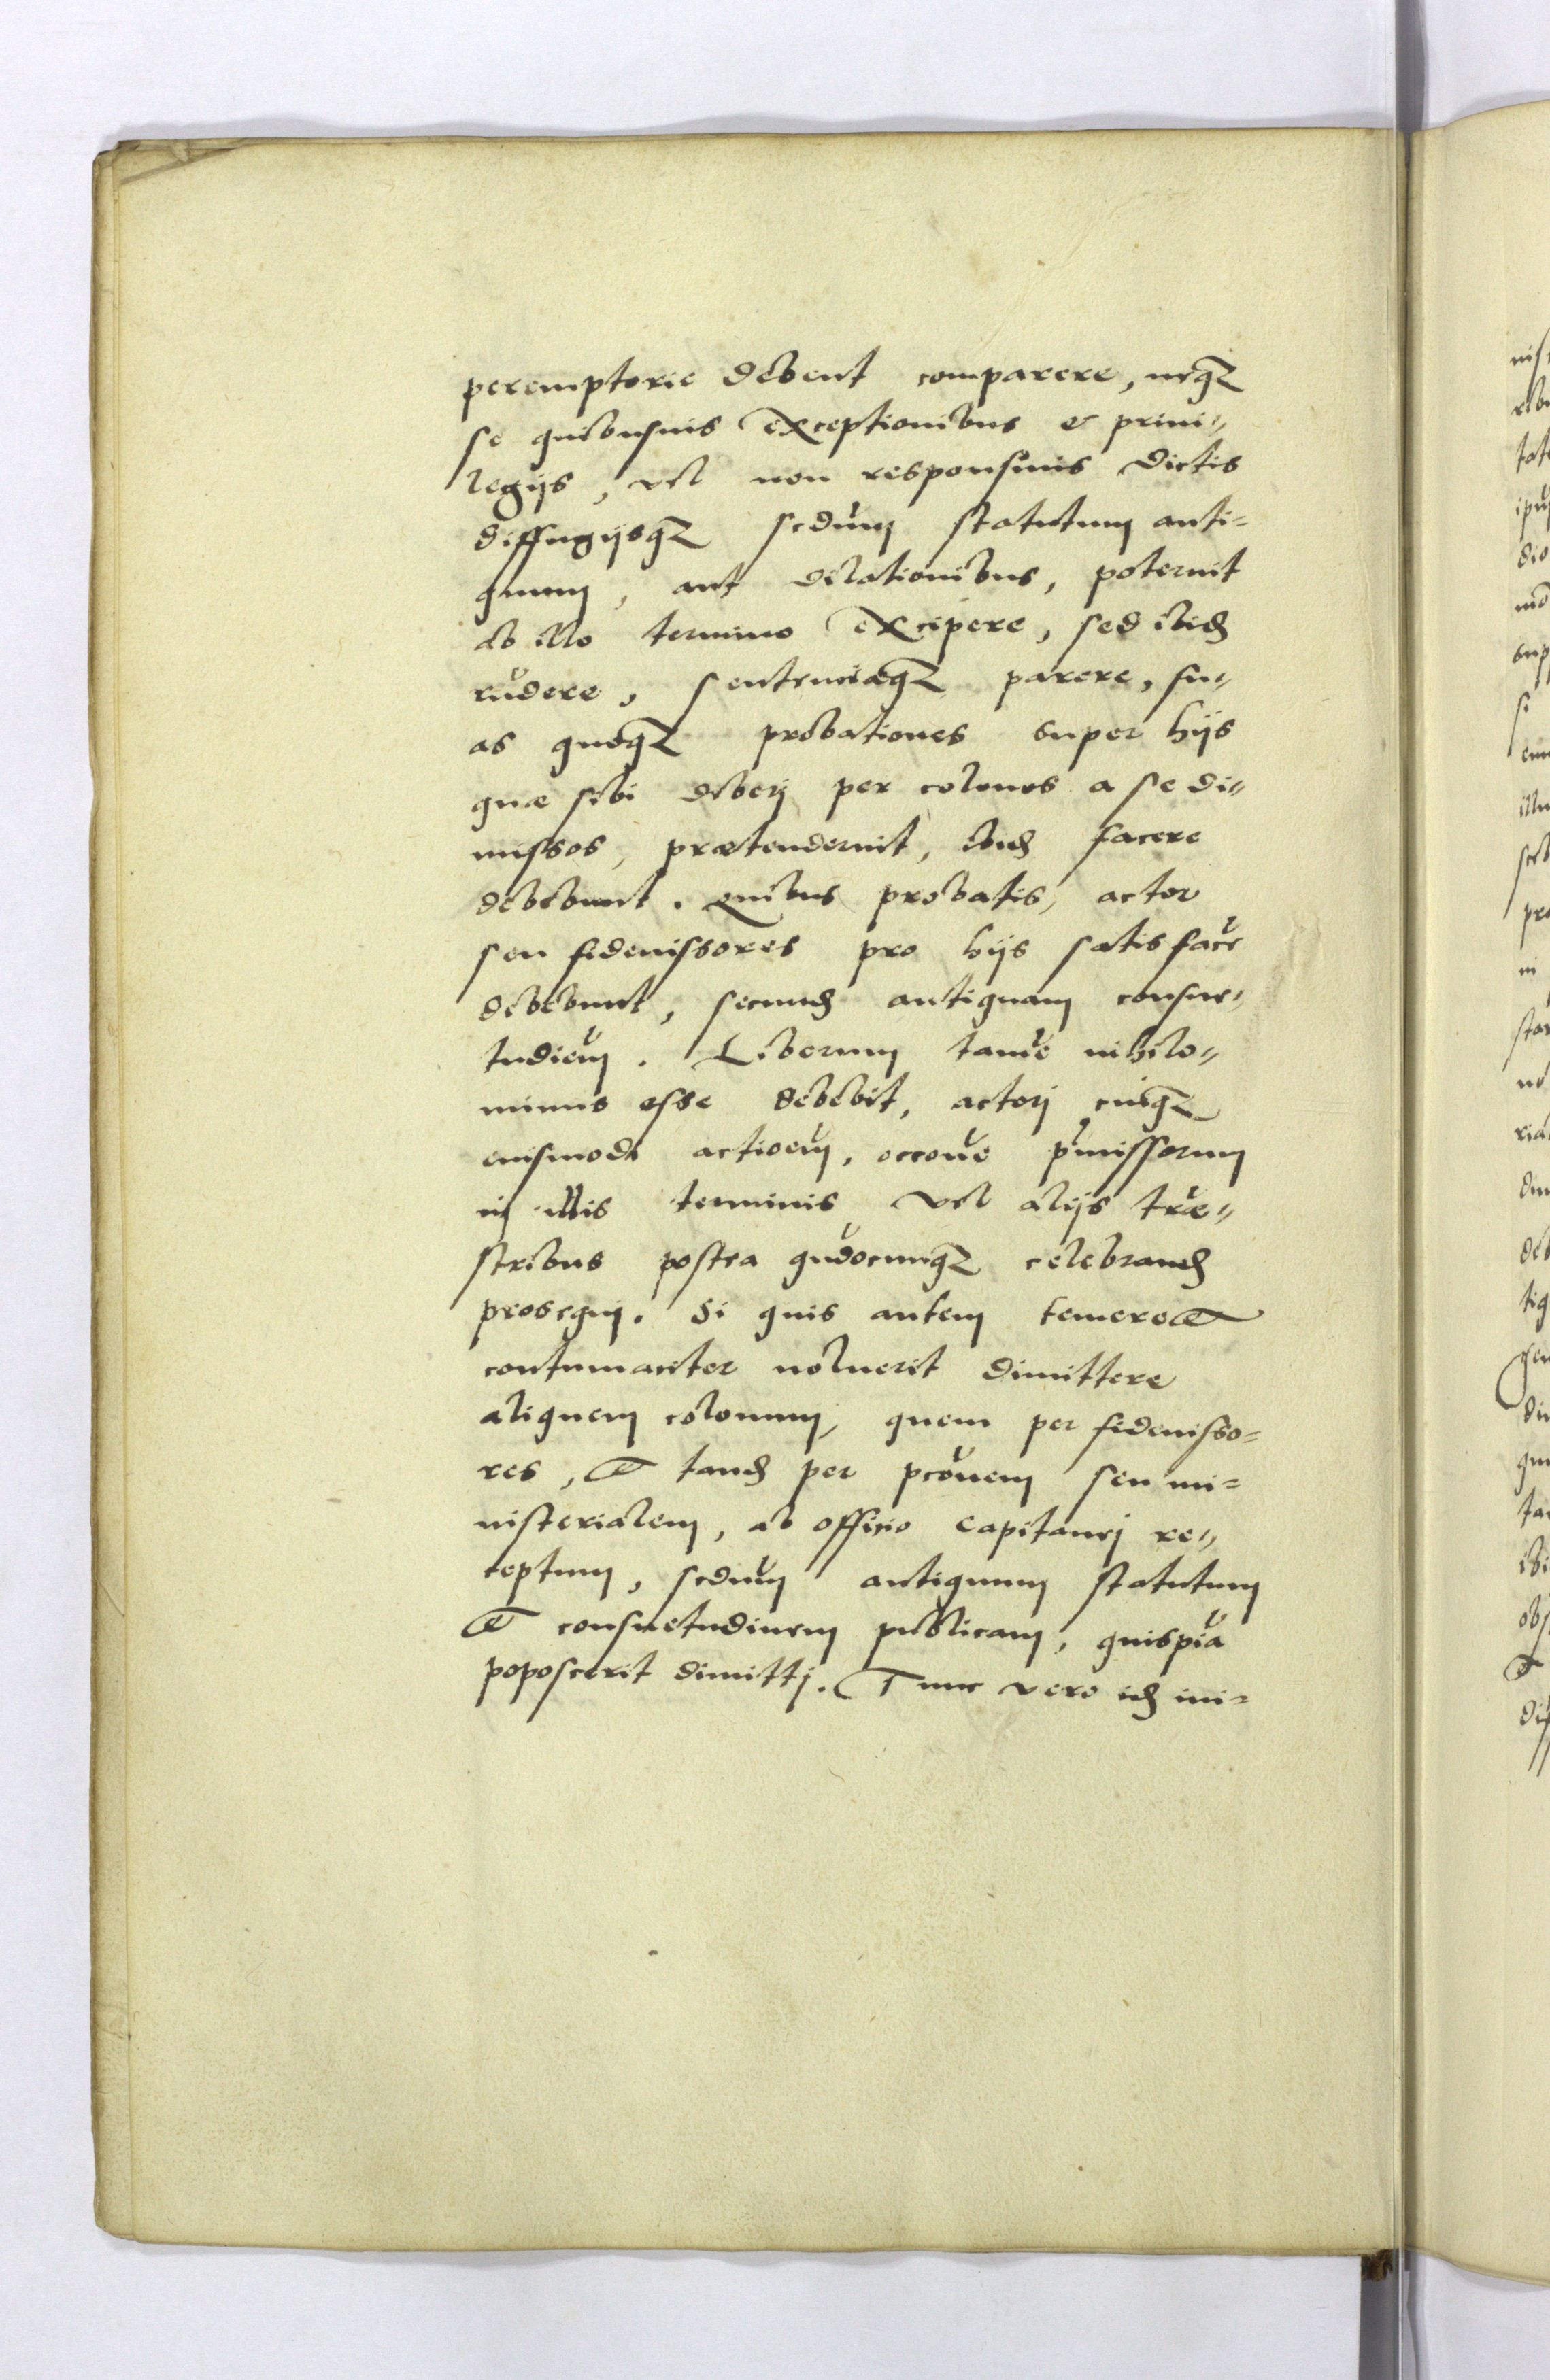 peremptorie debent comparere, neqꝫ
se quibusuis exceptionibus & priui„
legijs, vel non responsiuis dictis
diffugijsqꝫ scdum statutum anti=
quum, aut dilationibus, poterint
ab illo termino excipere, sed ibid
rndere, sententiæqꝫ parere, su„
as quoqꝫ probationes super hijs
quæ sibi deberj per colonos a se di„
missos, prætenderint, ibid facere
debebunt. Quibus probatis, actor
seu fideiussores pro hijs satisfacre
debebunt, secund antiquam consue„
tudiem. Liberum tamen nihilo„
minus esse debebit, actorj cuiqꝫ
eiusmodi actioem, occone pmissorum
in illis terminis vel alijs træ„
stribus postea qudocunqꝫ celebrand
prosequj. Si quis autem temere et
contumaciter noluerit dimittere
aliquem colonum, quem per fideiusso=
res, et tand per pconem seu mi=
nisterialem, ab officio capitanej re„
ceptum, scdum antiquum statutum
et consuetudinem publicam, quispia
poposcerit dimittj. Tunc vero id mi=